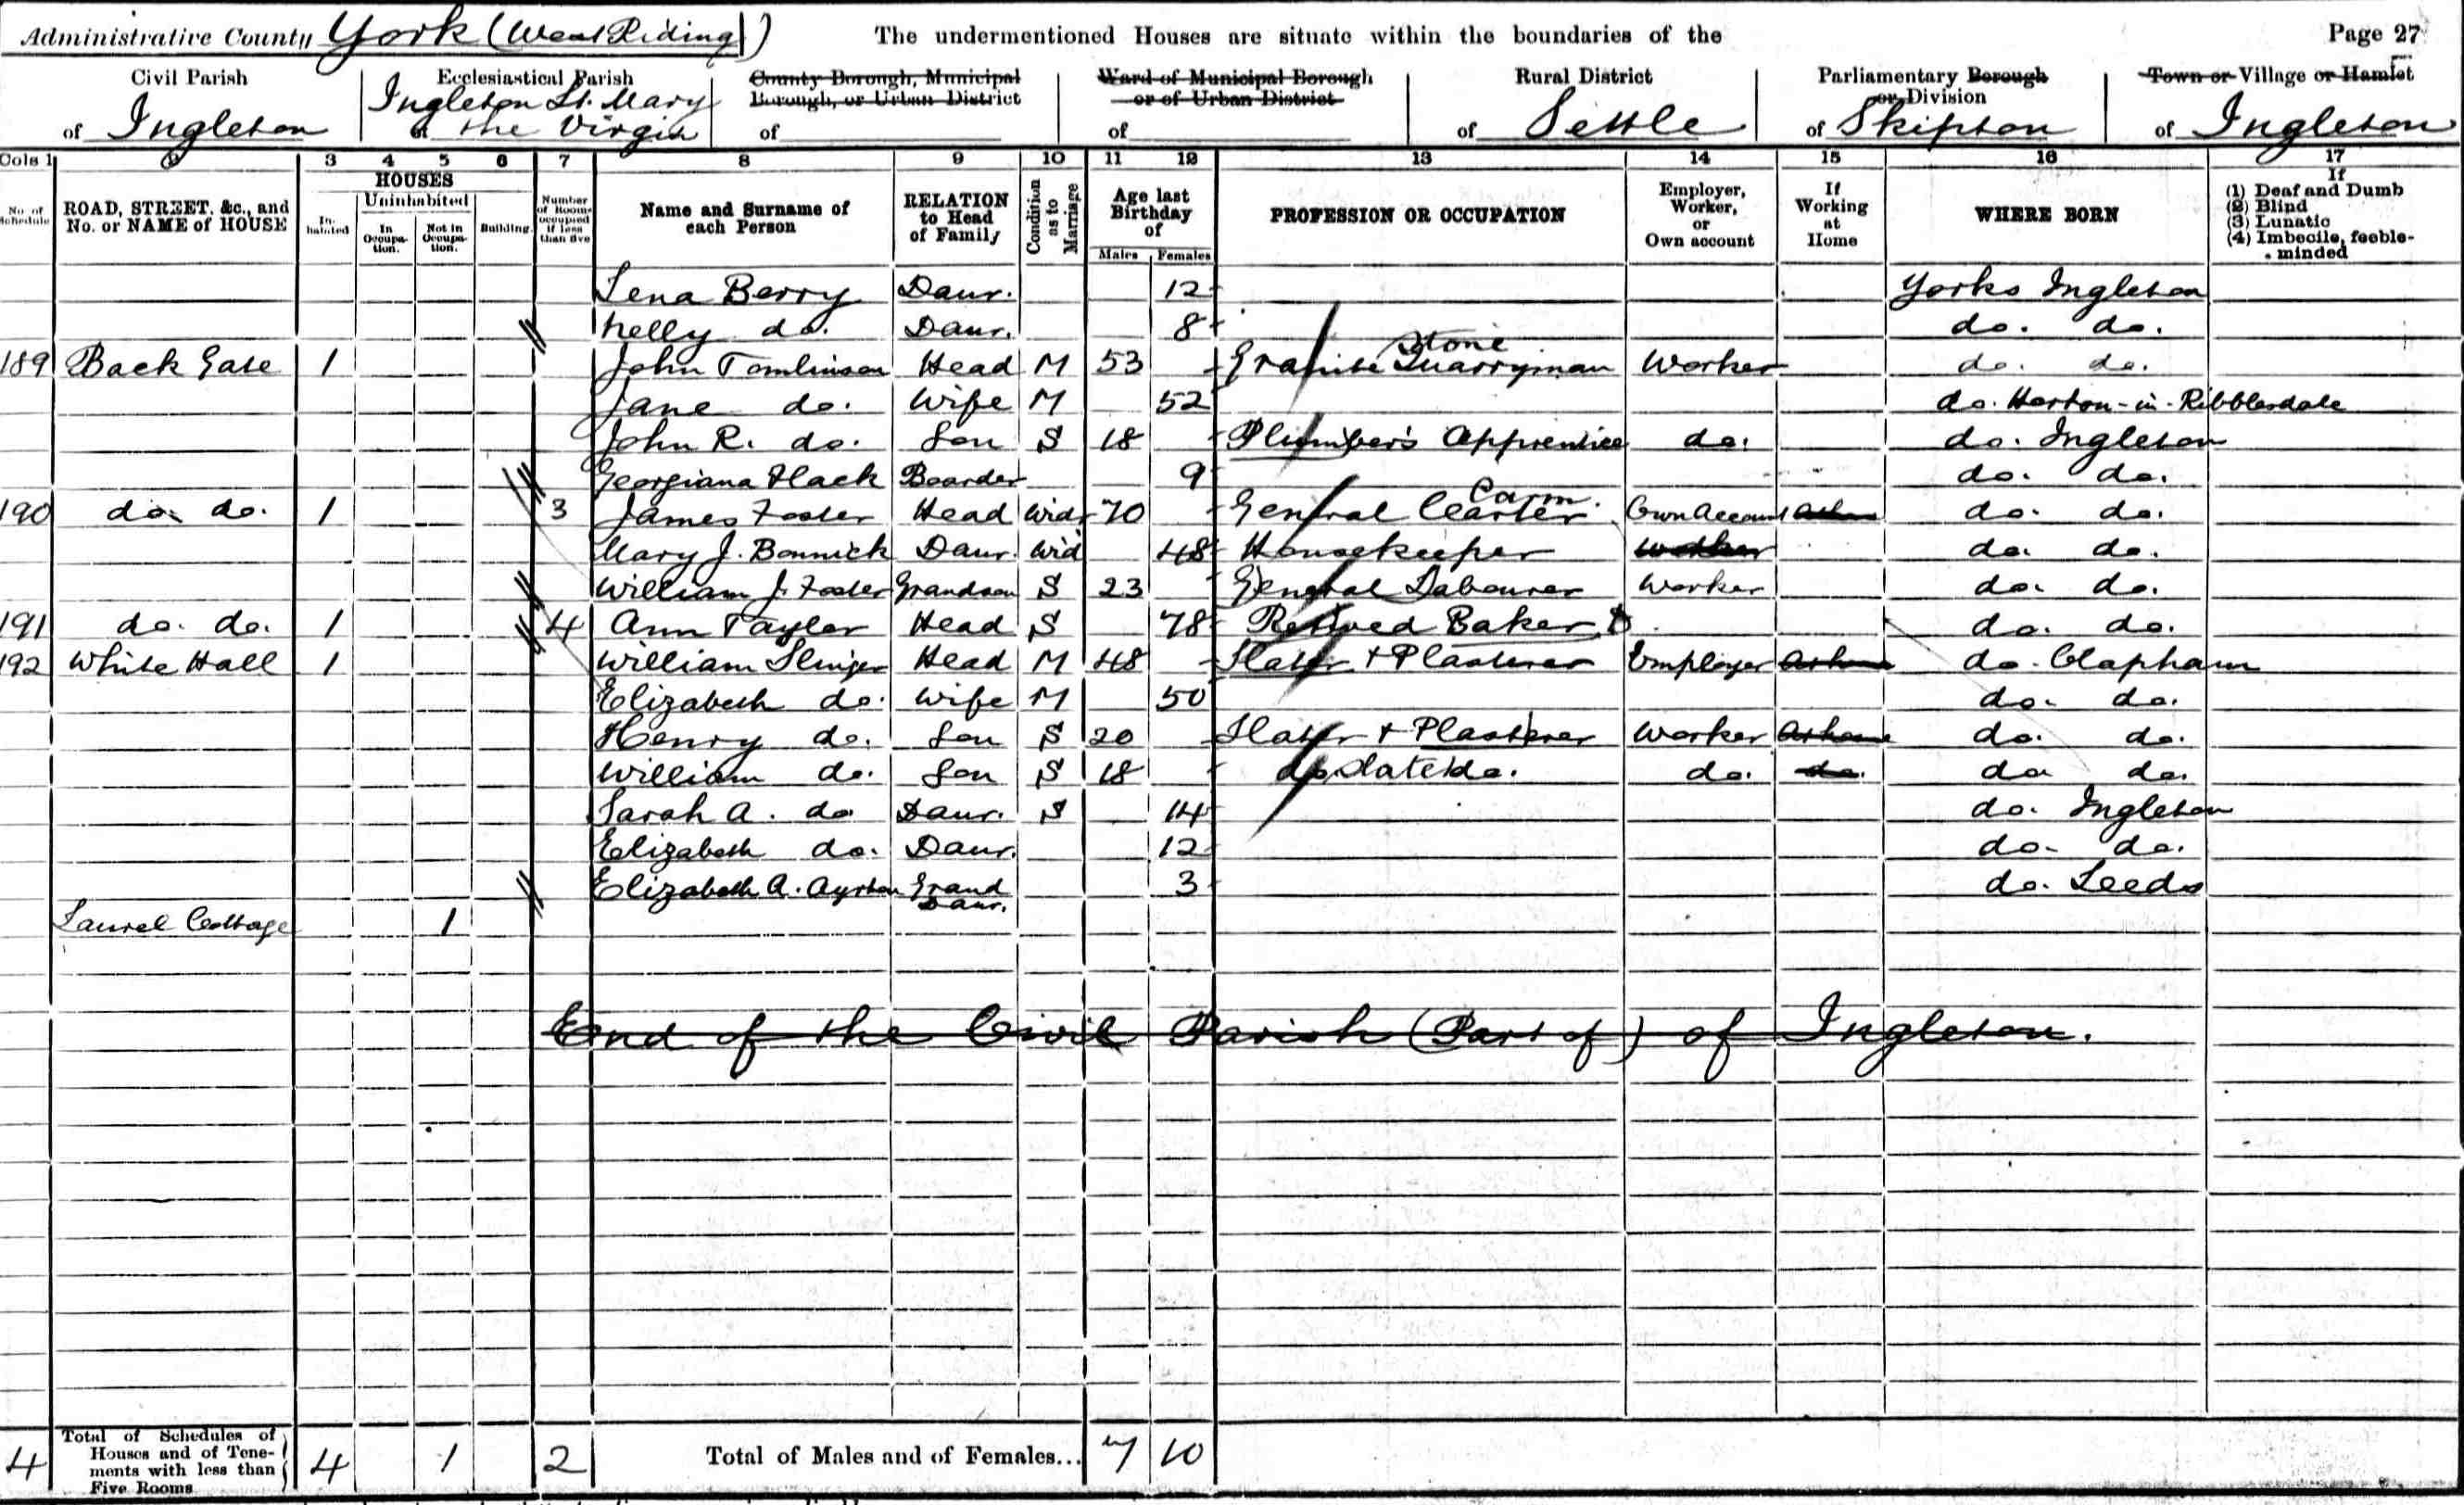 Administrative County York (West Riding) The undermentioned Houses are situate within the boundaries of the Page 27
Civil Parish of Ingleton
Ecclesiastical Parish of Ingleton St. Mary the Virgin
County Borough, Municipal Borough, or Urban District of
Ward of Municipal Borough or of Urban District of
Rural District of Settle
Parliamentary Borough or Division of Skipton
Town or Village or Hamlet of Ingleton
Cols 1 2 3 4 5 6 7 8 9 10 11 12 13 14 15 16 17
No. of Schedule
ROAD, STREET, &c., and No. or NAME of HOUSE
HOUSES
In-habited
Uninhabited
In Occupa-tion.
Not in Occupa-tion.
Building.
Number of Rooms occupied if less than five
Name and Surname of each Person
RELATION to Head of Family
Condition as to Marriage
Age last Birthday of
Males Females
PROFESSION OR OCCUPATION
Employer, Worker, or Own account
If Working at Home
WHERE BORN
If
(1) Deaf and Dumb
(2) Blind
(3) Lunatic
(4) Imbecile, feeble-minded
Lena Berry Daur. 12 Yorks Ingleton
Nelly do. Daur. 8 do. do.
189 Back Gate 1 John Tomlinson Head M 53 Granite Stone Quarryman Worker do. do.
Jane do. Wife M 52 do. Horton-in-Ribblesdale
John R. do. Son S 18 Plumber's Apprentice do. do. Ingleton
Georgiana Flack Boarder 9 do. do.
190 do. do. 1 3 James Foster Head Widr 70 General Carter Carm. Own Account At home do. do.
Mary J. Bonnick Daur. Wid 48 Housekeeper Worker do. do.
William J. Foster Grandson S 23 General Labourer Worker do. do.
191 do. do. 1 4 Ann Tayler Head S 78 Retired Baker do. do.
192 White Hall 1 William Slinger Head M 48 Slater + Plasterer Employer At home do. Clapham
Elizabeth do. Wife M 50 do. do.
Henry do. Son S 20 Slater + Plasterer Worker At home do. do.
William do. Son S 18 do. Slater do. do. do. do. do.
Sarah A. do. Daur. S 14 do. Ingleton
Elizabeth do. Daur. 12 do. do.
Elizabeth A. Ayrton Grand Daur. 3 do. Leeds
Laurel Cottage 1
End of the Civil Parish (Part of) of Ingleton.
4 Total of Schedules of Houses and of Tene-ments with less than Five Rooms 4 1 2 Total of Males and of Females... 7 10